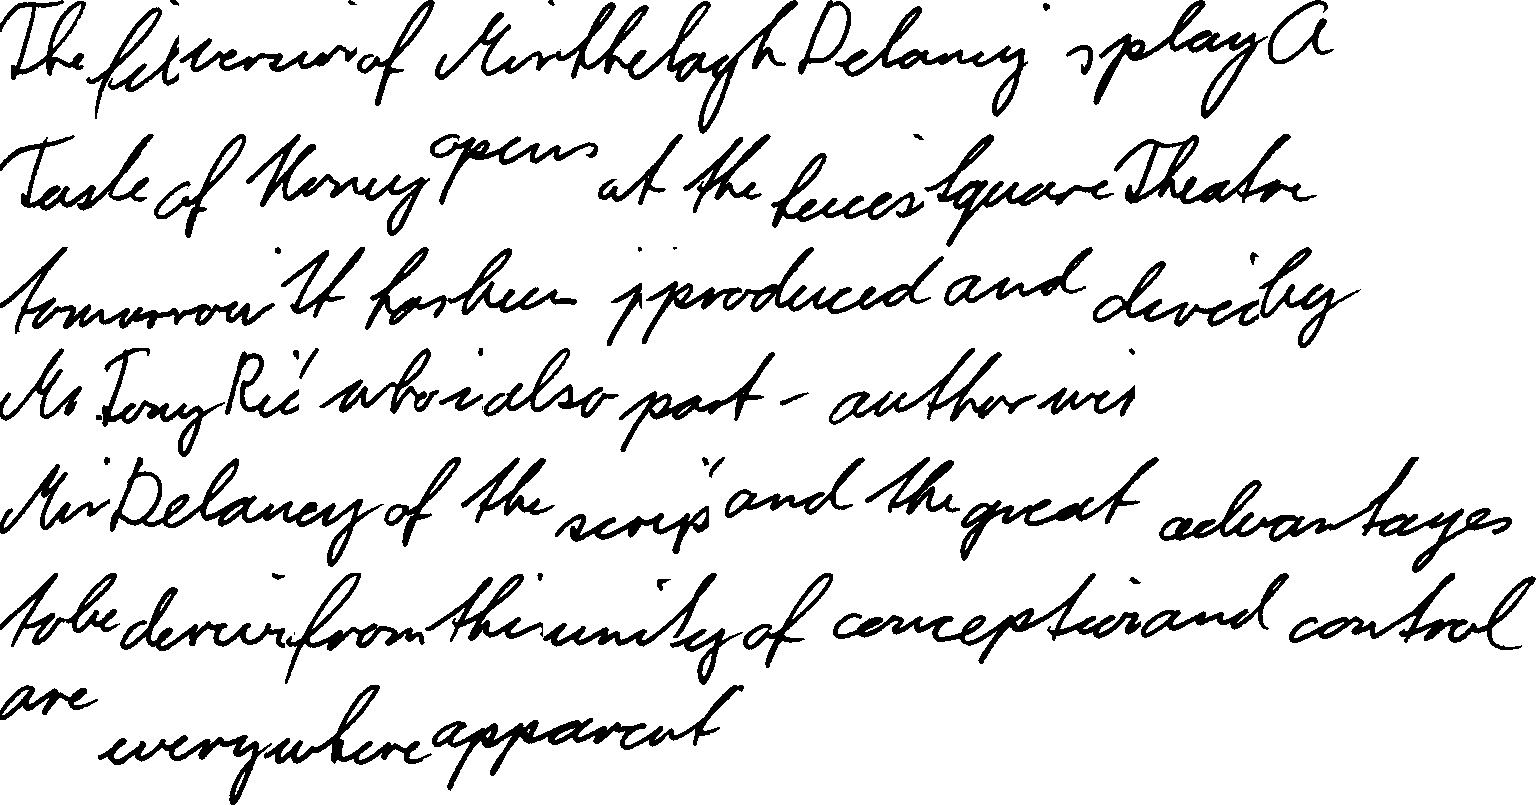 The film version of Miss Shelagh Delaney 's play A
Taste of Honey opens at the Leicester Square Theatre
tomorrow It has been produced and directed by
Mr Tony who is also part - author with
Miss Delaney of the script and the great advantages
to be derived from this unity of conception and control
are everywhere apparent